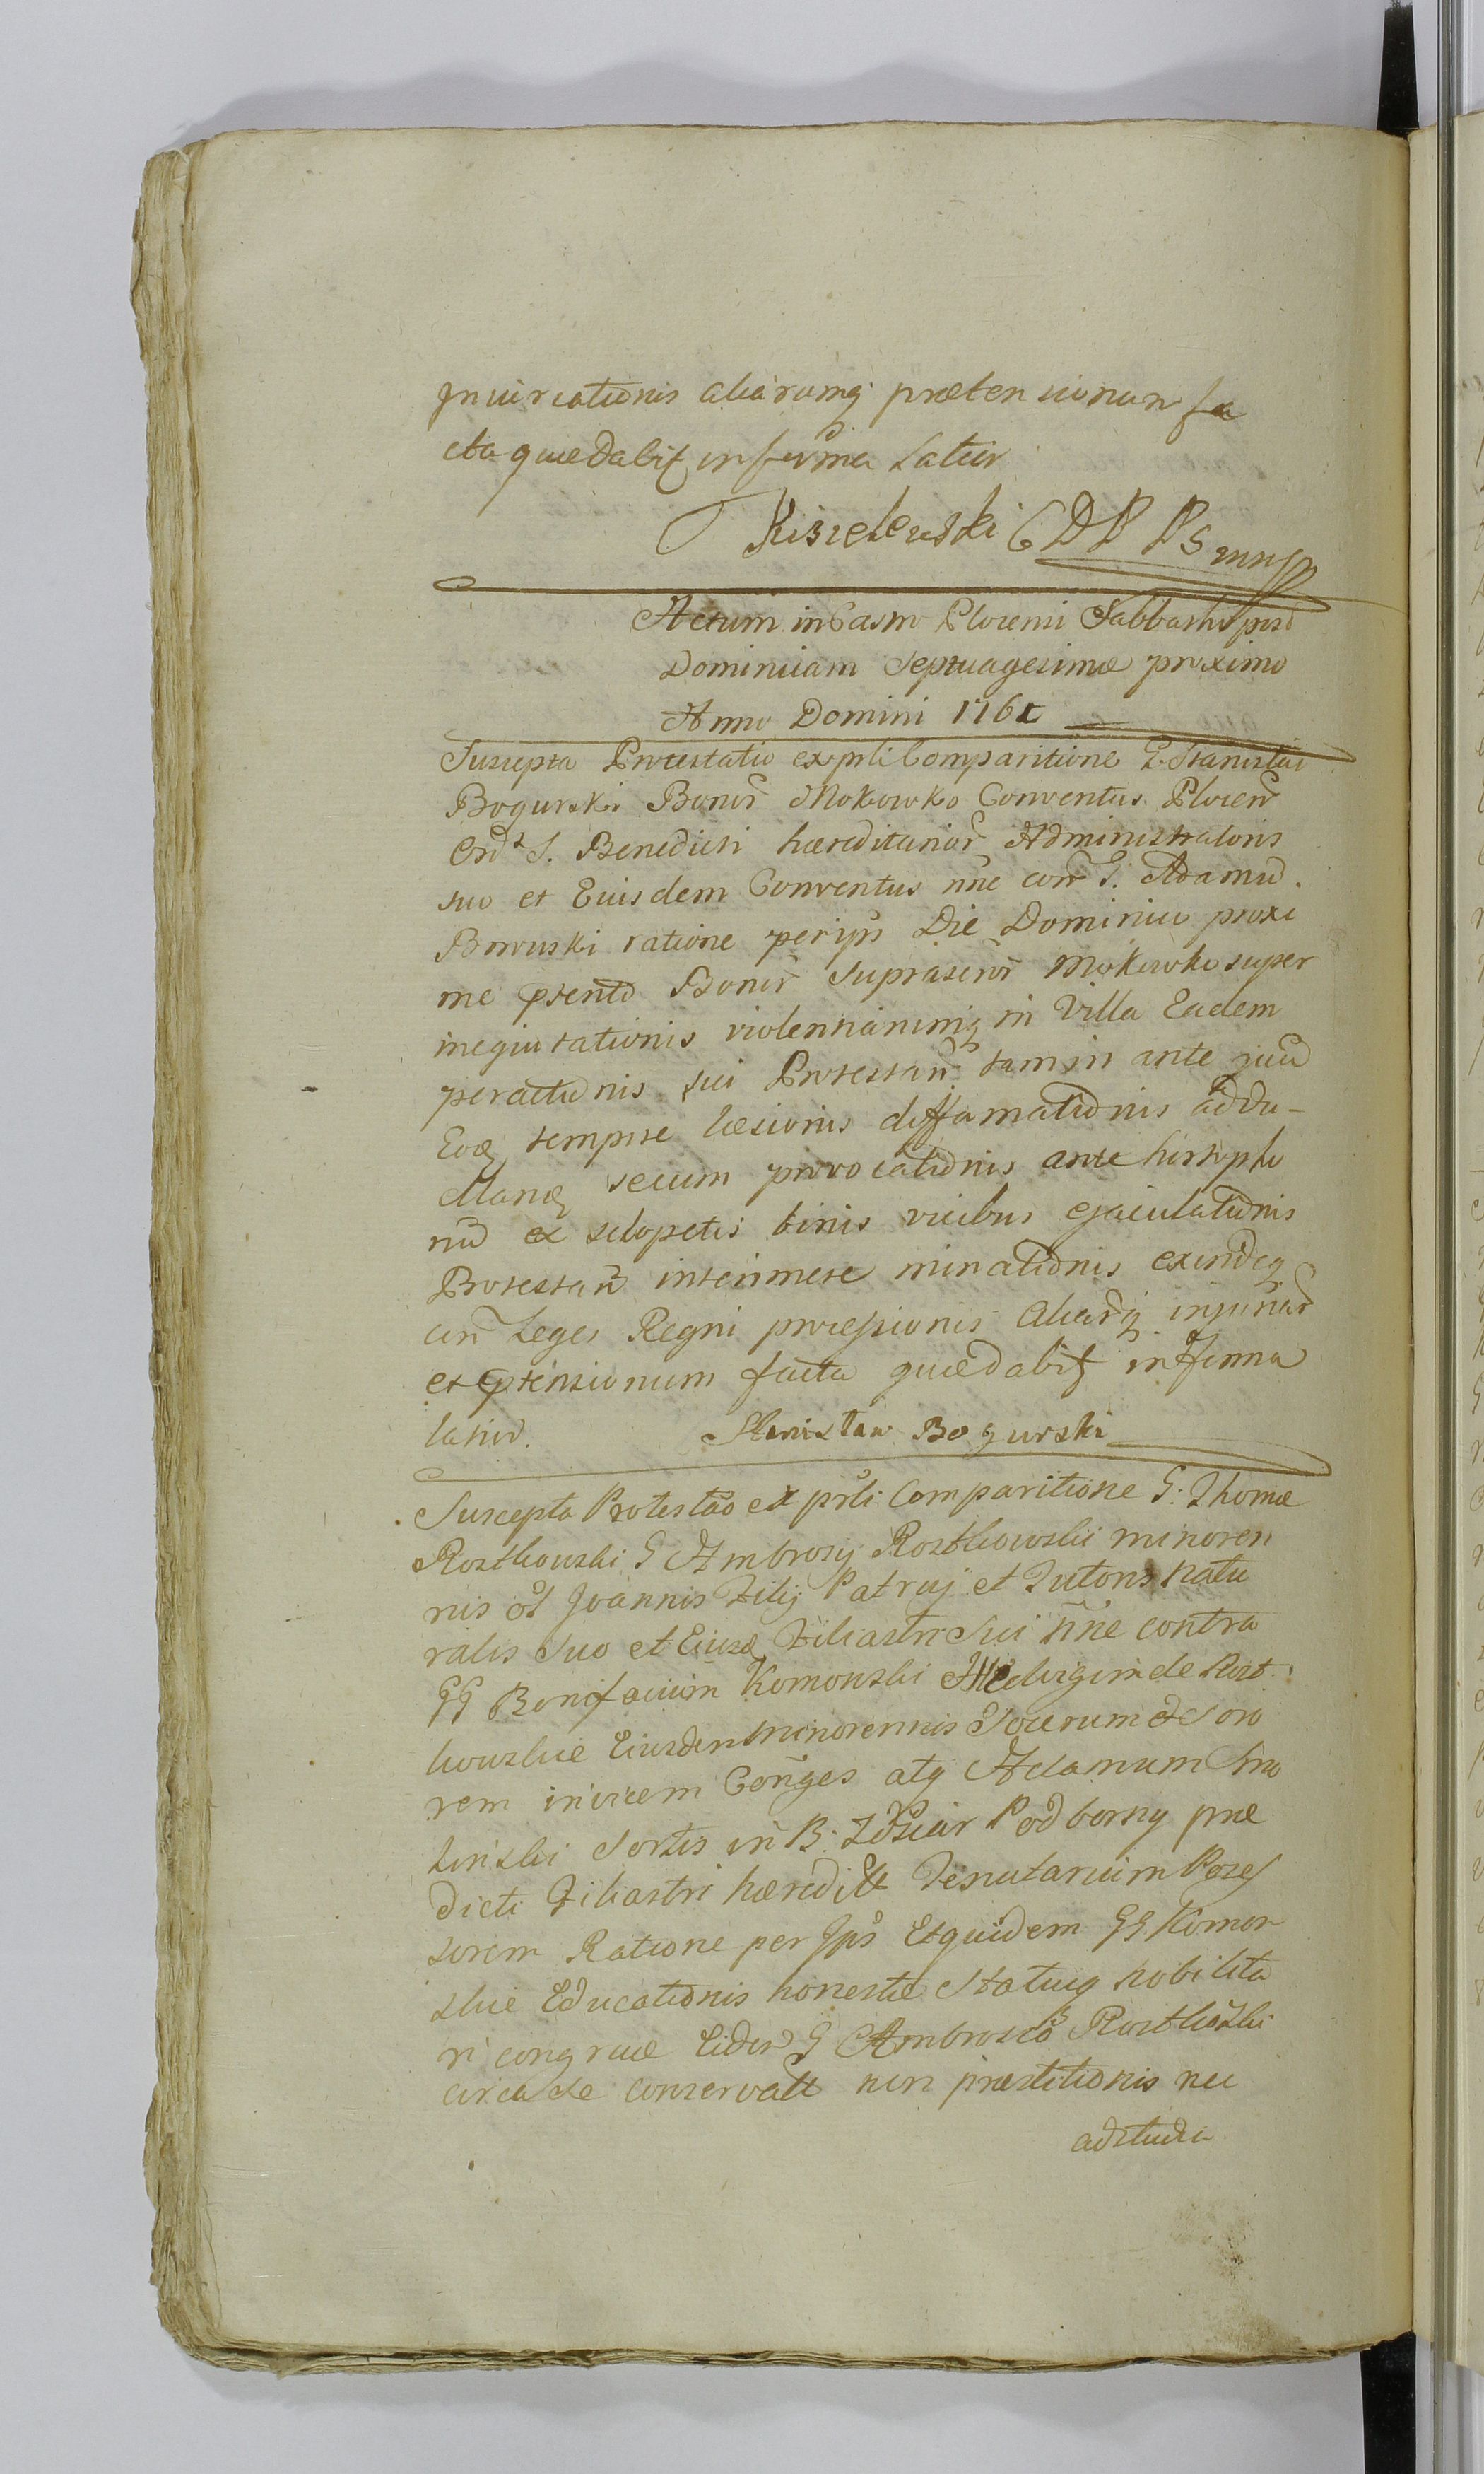 Injuriationis aliarumq prætensionum fa
cta quædabit in forma Latior
Kisielewski CDP PS mp
Actum in Castro Plocensi Sabbatho post
Dominicam Septuagesimæ proximo
Anno Domini 1761
Suscepta Protestatio ex prti Comparitione G. Stanislai
Bogurski Bonor Mokowko Conventus Plocen
Ord S. Benedicti hæreditarior Administratoris
suo et Eiusdem Conventus nne con G. Adamum
Borwski ratione per ips Die Dominico proxi
me ptento Bonor Suprascror Mokowko super
inequitationis violentiarumq in Villa Eadem
peractionis sui Protestan tam in ante
Eoq tempore læsionis diffamationis addu-
secum provocationis ante hisþpho
num ex sclopetis binis vicibus ejaculationis
Protestan interimere minationis exindeq
con Leges Regni processionis Aliarq injuriar
et ptensionum facta quædabit in fforma
latior. Stanisław Bogurski
Suscepta Protestao ex prti Comparitione G. Thomæ
Rostkowski G Ambrosij Rostkowski minoren
nis ol Joannis Filij Patruj et Tutoris Natu
ralis Suo et Eiusd Filiastri Sui nne contra
GG Bonifacium Komorwski Hedvigim de Rost
kowskie Eiusdem minorennis Socerum et Soro
rem invicem Conges atq Adamum
Sortis in B. Podborny præ
dicti Filiastri hæredit Tenutarium Poses
sorem Ratione per Ips Et quidem GG Komor
skie Educationis honestæ Statuiq Nobilita
ri congruæ Eidem G Ambrosio Rostkowski
circa se conservatt non præstitionis nec
ad studia